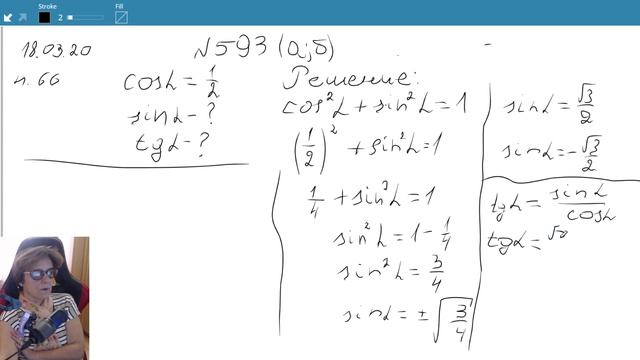 Stroke
Fill
2
18.03.20
№593 (а;б)
п. 66
cosα = 1/2
sinα - ?
tgα - ?
Решение:
cos²α + sin²α = 1
(1/2)² + sin²α = 1
1/4 + sin²α = 1
sin²α = 1 - 1/4
sin²α = 3/4
sinα = ± √(3/4)
sinα = √3/2
sinα = - √3/2
tgα = sinα/cosα
tgα =